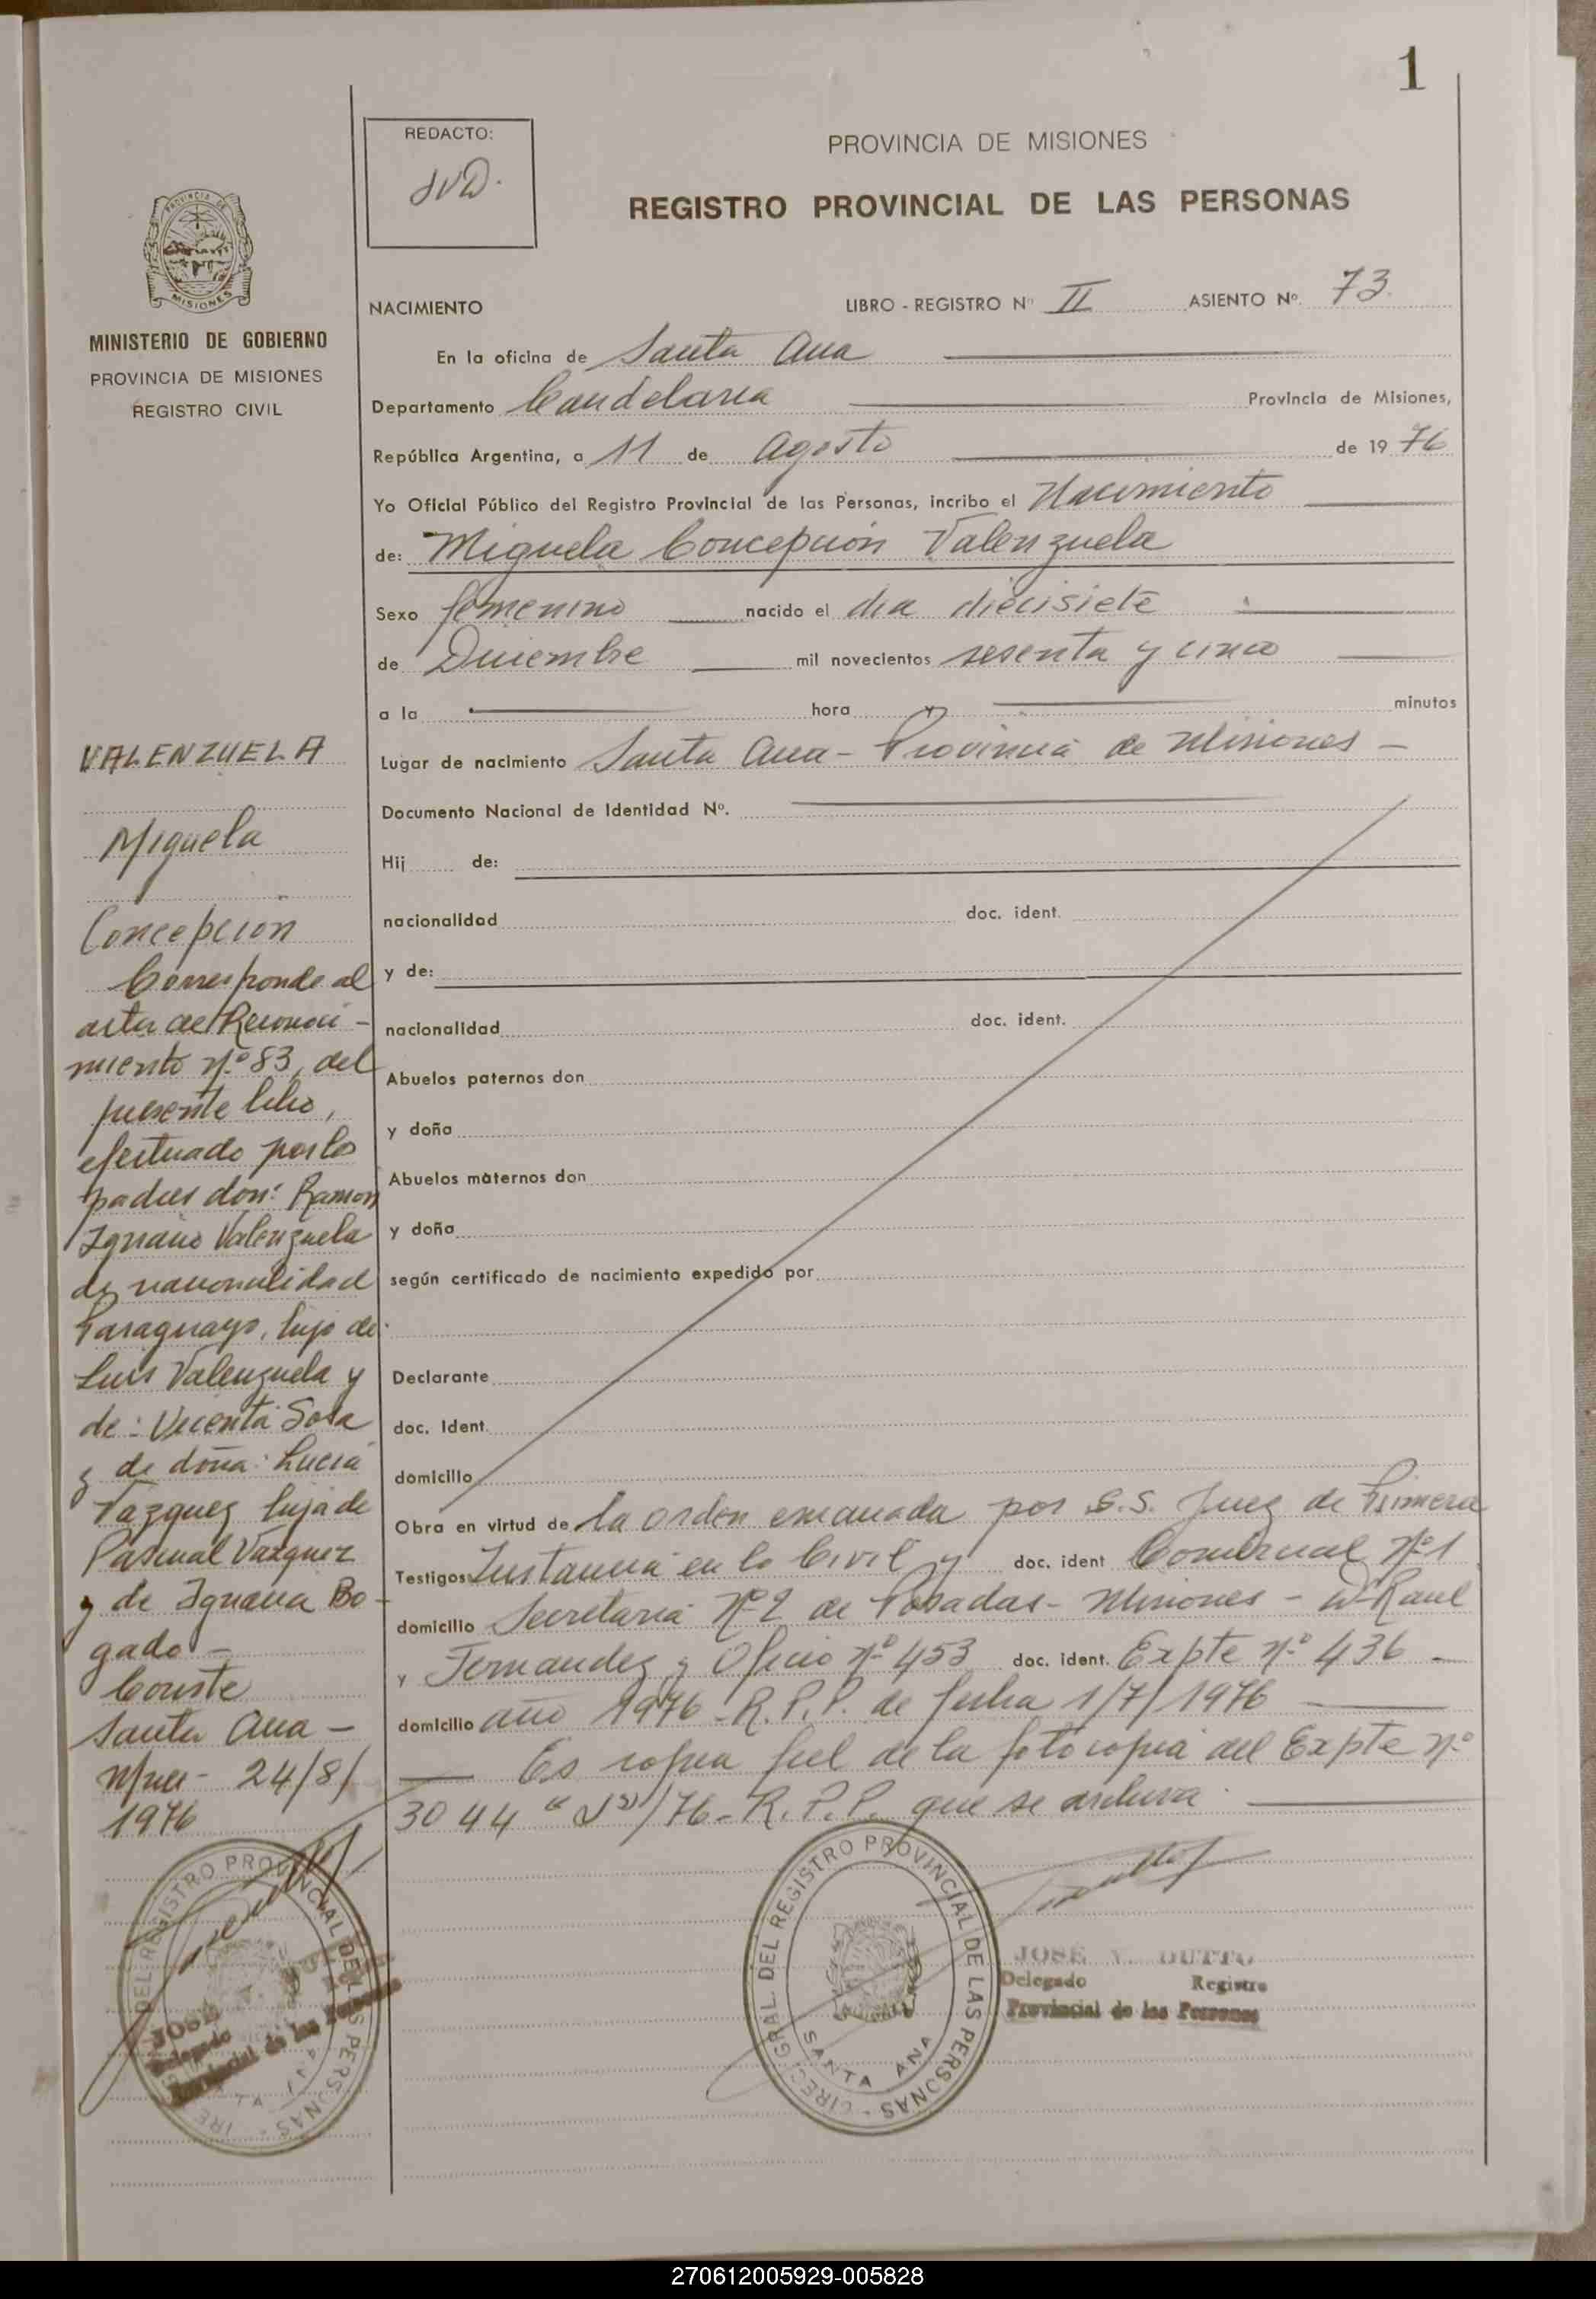 1
REDACTO:
JVD.
PROVINCIA DE MISIONES
REGISTRO PROVINCIAL DE LAS PERSONAS
MISIONES
MINISTERIO DE GOBIERNO
PROVINCIA DE MISIONES
REGISTRO CIVIL
NACIMIENTO LIBRO - REGISTRO Nº II ASIENTO Nº. 73
En la oficina de Santa Ana
Departamento Candelaria Provincia de Misiones,
República Argentina, a 11 de Agosto de 19 76
Yo Oficial Público del Registro Provincial de las Personas, incribo el Nacimiento
de: Miguela Concepción Valenzuela
Sexo femenino nacido el dia diecisiete
de Diciembre mil novecientos sesenta y cinco
a la hora y minutos
Lugar de nacimiento Santa Ana - Provincia de Misiones -
Documento Nacional de Identidad Nº.
Hij de:
nacionalidad doc. ident.
y de:
nacionalidad doc. ident.
Abuelos paternos don
y doña
Abuelos maternos don
y doña
según certificado de nacimiento expedido por
Declarante
doc. Ident.
domicilio
Obra en virtud de la orden emanada por S.S. Juez de Primera
Testigos Instancia en lo Civil y doc. ident Comercial Nº 1
domicilio Secretaria Nº 2 de Posadas - Misiones - Dr Raul
y Fernandez y Oficio Nº 453 doc. ident. Expte Nº 436 -
domicilio año 1976 - R.P.P. de fecha 1/7/1976
Es copia fiel de la fotocopia del Expte Nº
3044 "J"/76 - R.P.P. que se archiva.
VALENZUELA
Miguela
Concepcion
Corresponde al
acta de Reconoci -
miento Nº 83, del
presente libro,
efectuado por los
padres don: Ramon
Ignacio Valenzuela
de nacionalidad
Paraguayo, hijo de
Luis Valenzuela y
de: Vicenta Sosa
y de doña: Lucia
Vazquez hija de
Pascual Vazquez
y de Ignacia Bo -
gado -
Conste
Santa Ana -
Mnes - 24/8/
1976
DIREC. GRAL. DEL REGISTRO PROVINCIAL DE LAS PERSONAS -
SANTA ANA
JOSE V. DUTTO
Delegado Registro
Provincial de las Personas
DEL REGISTRO PROVINCIAL DE LAS PERSONAS -
JOSE
Delegado
Provincial de las Personas
270612005929-005828